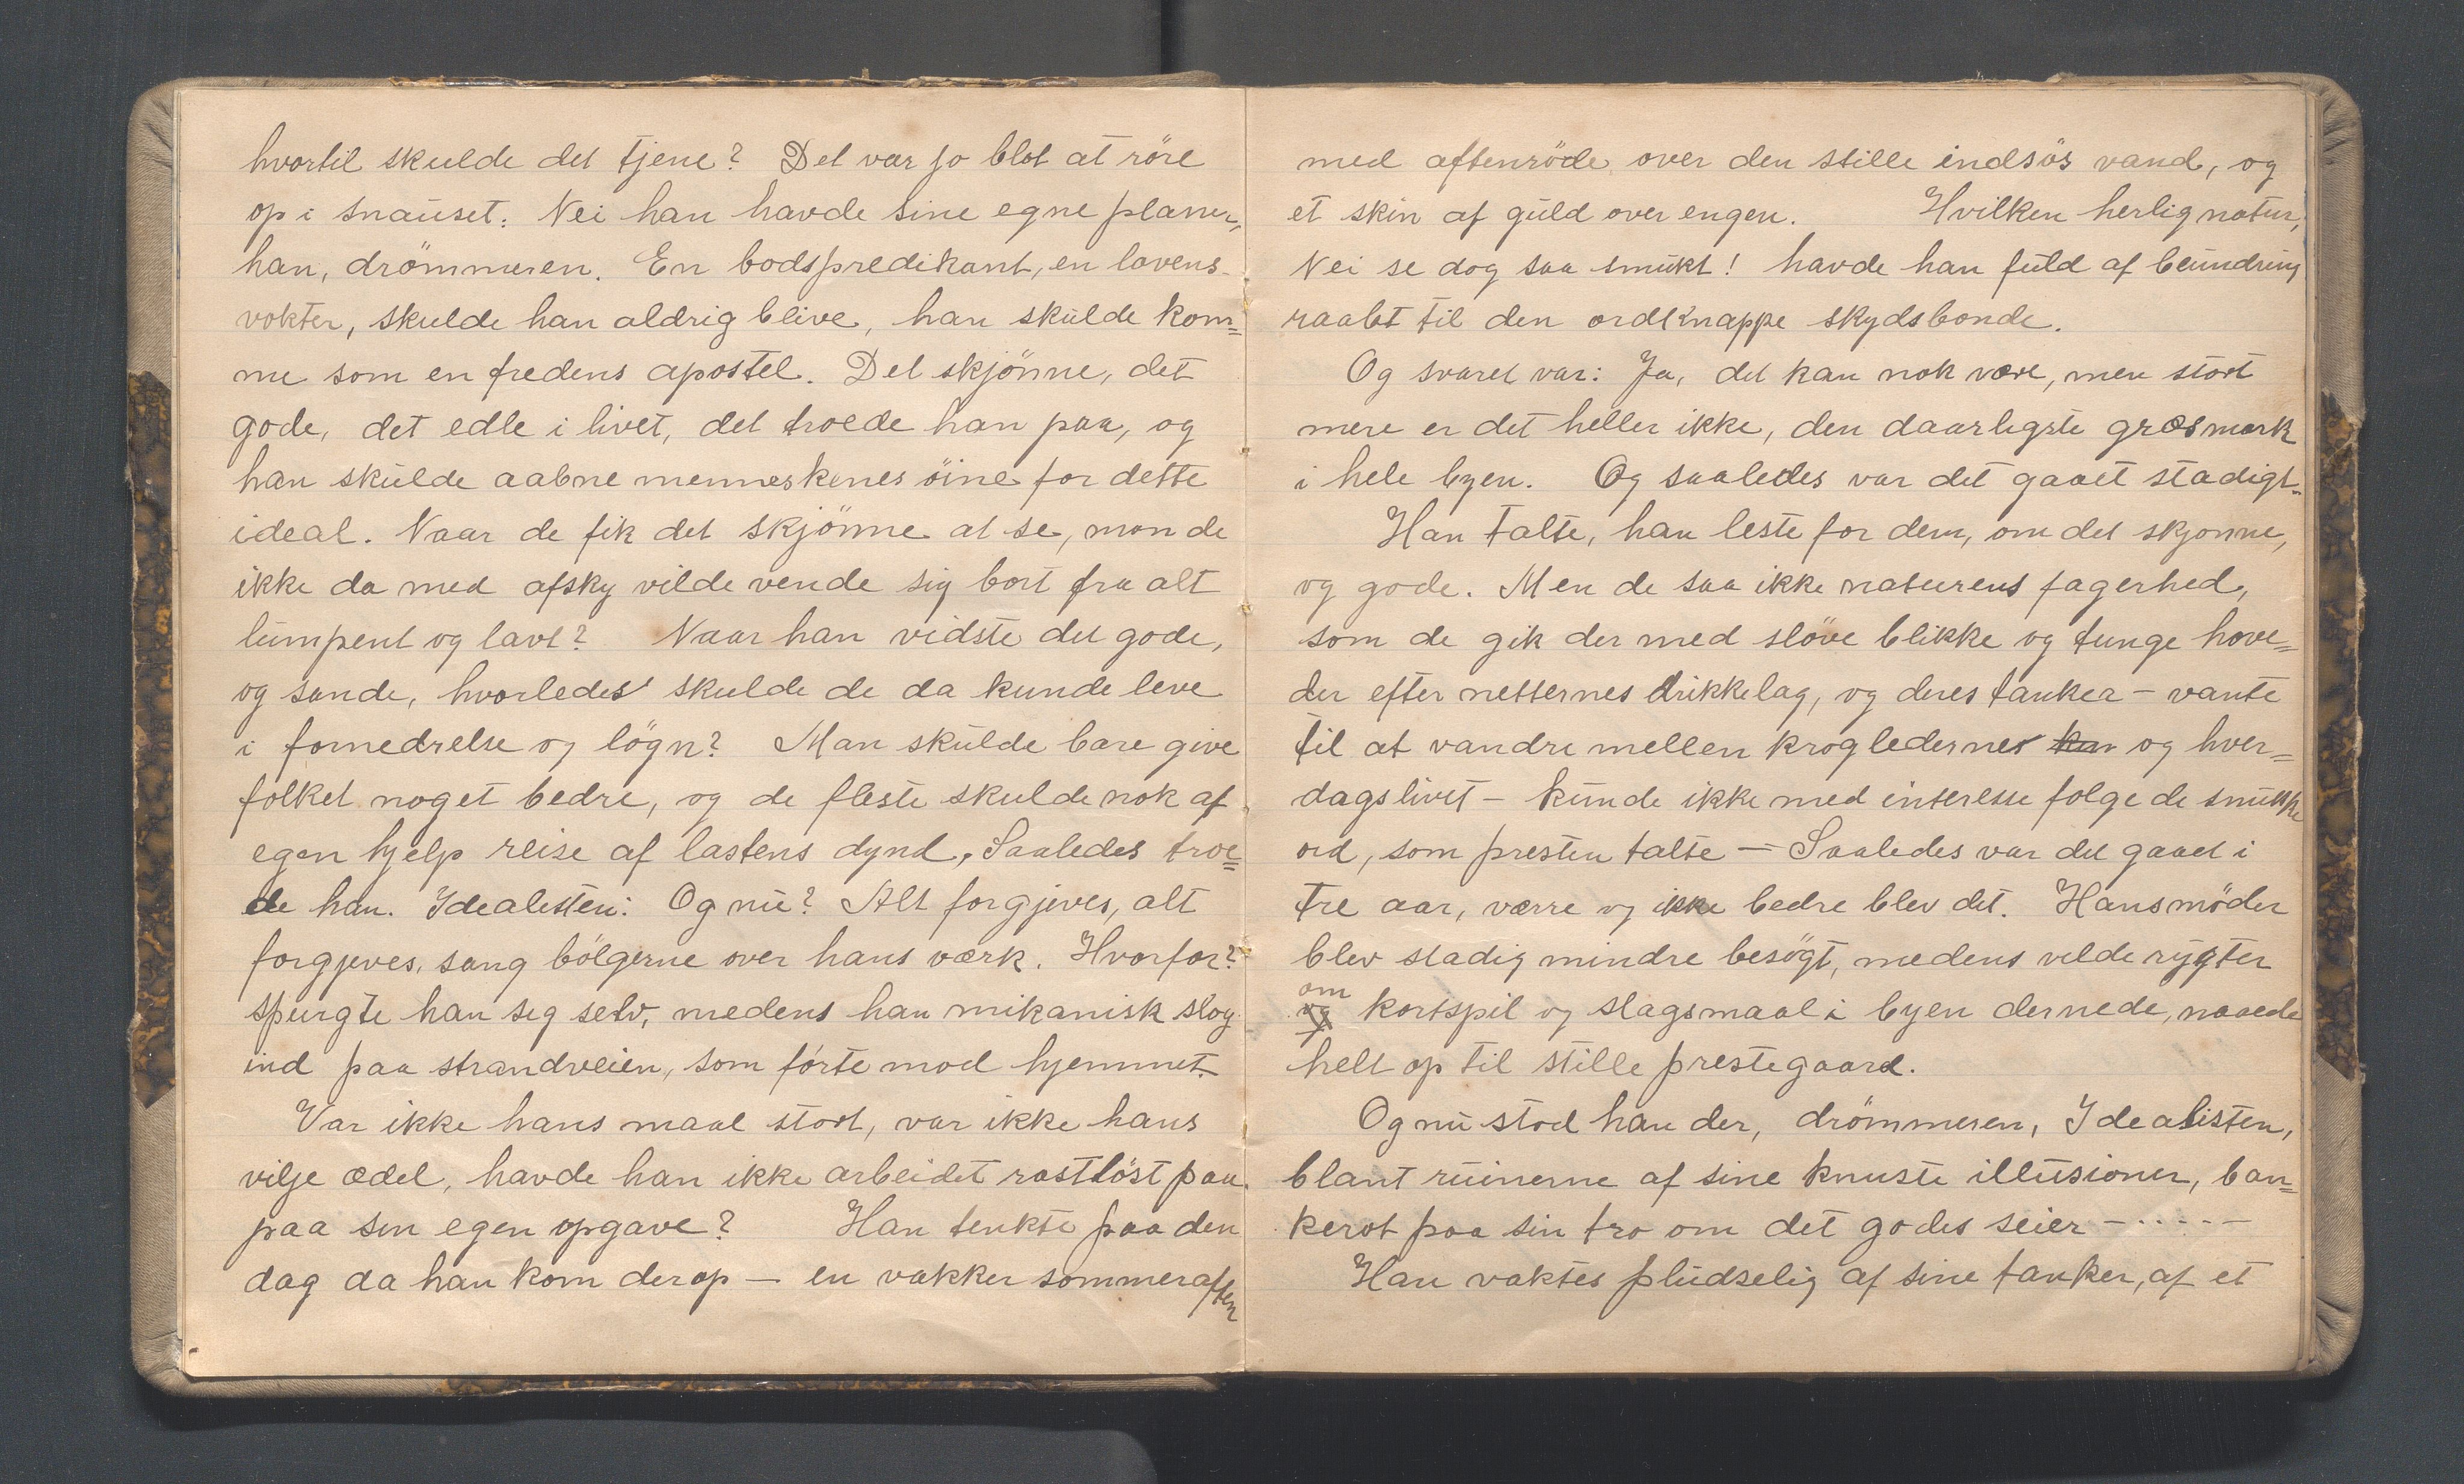 hvortil skulde det tjene? Det var jo blot at röre
op i snauset. Nei han havde sine egne planer,
han, drömmeren. En bodspredikant, en lovens-
vokter, skulde han aldrig blive, han skulde kom=
me som en fredens apostel. Det skjönne, det
gode, det edle i livet, det troede han paa, og
han skulde aabne menneskenes öine for dette
ideal. Naar de fik det skjönne at se, mon de
ikke da med afsky vilde vende sig bort fra alt
lumpent og lavt? Naar han vidste det gode,
og sande, hvorledes skulde de da kunde leve
i fornedrelse og lögn? Man skulde bare give
folket noget bedre, og de fleste skulde nok af
egen hjelp reise af lastens dynd. Saaledes troe=
de han. Idealisten: Og nu? Alt forgjeves, alt
forgjeves, sang bölgerne over hans værk. Hvorfor?
spurgte han seg selv, medens han mikanisk slog
ind paa strandveien, som förte mod hjemmet.
Var ikke hans maal stort, var ikke hans
vilje ædel, havde han ikke arbeidet rastlöst paa
paa sin egen opgave? Han tenkte paa den
dag da han kom derop — en vakker sommeraften
med aftenröde over den stille indsös vand, og
et skin af guld over engen. Hvilken herlig natur,
Nei se dog saa smukt! havde han fuld af beundring
raabt til den ordknappe skydsbonde.
Og svaret var: Ja, det kan nok være, men stort
mere er det heller ikke, den daarligste græsmark
i hele byen. Og saaledes var det gaaet stadigt.
Han talte, han leste for dem, om det skjonne,
og gode. Men de saa ikke naturens fagerhed,
som de gik der med slöve blikke og tunge hove=
der efter netternes drikkelag, og deres tanker – vante
til at vandre mellen krogledernes kan og hver=
dagslivet – kunde ikke med interesse folge de smukke
ord, som presten talte — Saaledes var det gaaet i
tre aar, værre og ikke bedre blev det. Hans möder
blev stadig mindre besögt, medens vilde rygter
om
og kortspil og slagsmaal i byen dernede, naaede
helt op til stille prestegaard.
Og nu stod han der, drömmeren, Idealisten,
blant ruinerne af sine knuste illusioner, ban=
kerot paa sin tro om det godes seier – · · · · –
Han vaktes pludselig af sine tanker, af et